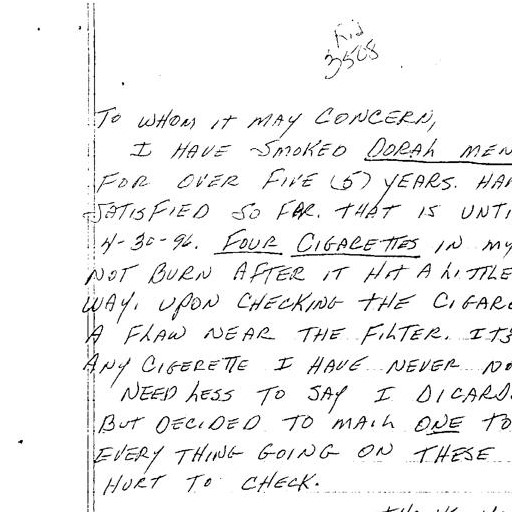 3508
TO WHOM IT MAY CONCERN,
I HAVE SMOKED DORAL MEN
FOR OVER FIVE (5) YEARS. HA
SATISFIED SO FAR. THAT IS UNTI
4-30-96. FOUR CIGARETTES IN MY
NOT BURN AFTER IT HIT A LITTLE
WAY. UPON CHECKING THE CIGAR
A FLAW NEAR THE FILTER. ITS
ANY CIGERETTE I HAVE NEVER NO
NEEDLESS TO SAY I DICARD
BUT DECIDED TO MAIL ONE TO
EVERY THING GOING ON THESE
HURT TO CHECK.